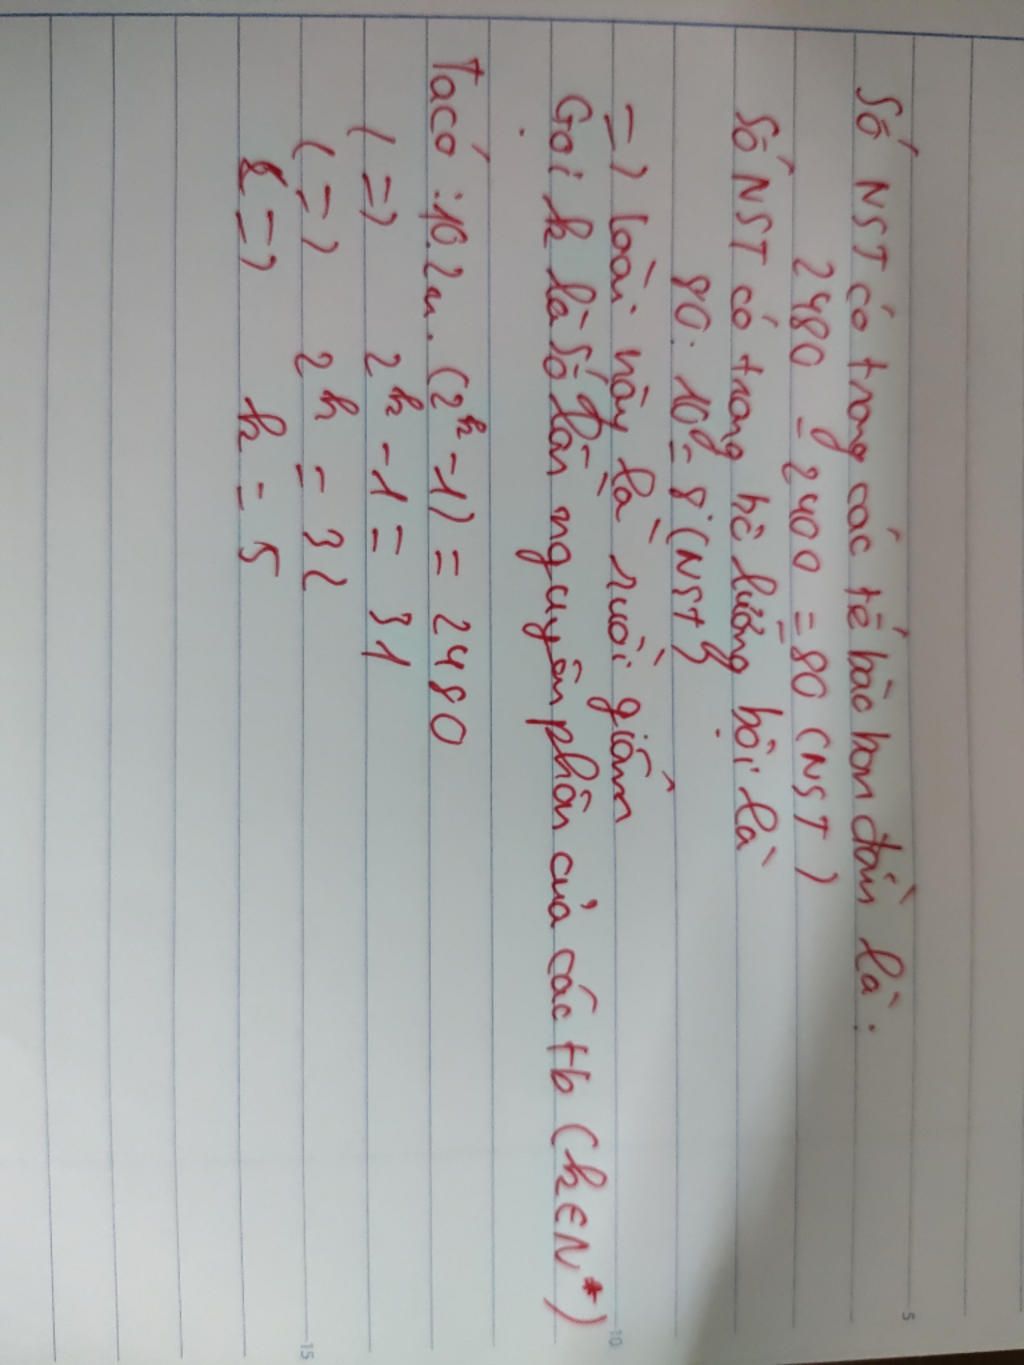 Số NST có trong các tế bào ban đầu là:
2480 - 2400 = 80 (NST)
Số NST có trong bộ lưỡng bội là
80 : 10 = 8 (NST)
=) loài này là ruồi giấm
Gọi k là số lần nguyên phân của các tb (k ∈ N*)
Ta có : 10. 2n. (2^k - 1) = 2480
(=) 2^k - 1 = 31
(=) 2^k = 32
(=) k = 5
5
10
15